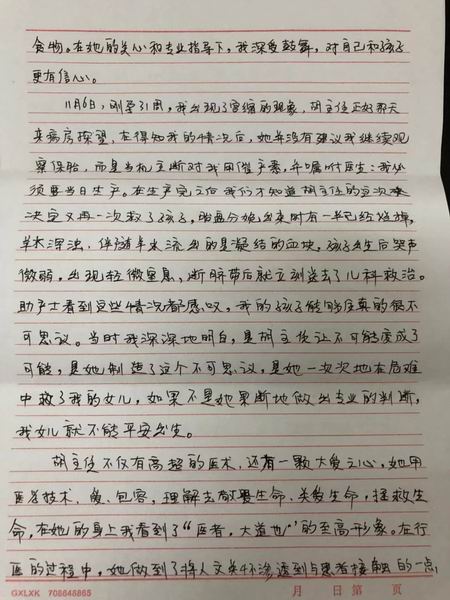 食物。在她的关心和专业指导下，我深受鼓舞，对自己和孩子
更有信心。
11月6日，刚孕31周，我出现了宫缩的现象，胡主任正好那天
来病房探望，在得知我的情况后，她并没有建议我继续观
察保胎，而是当机立断对我用催产素，并嘱咐医生：我必
须要当日生产。在生产完之后我们才知道胡主任的这次
决定又再一次救了孩子，胎盘分娩出来时有一半已经坏掉，
羊水浑浊，伴随羊水流出的是凝结的血块，孩子出生后哭声
微弱，出现轻微窒息，断脐带后就立刻送去了儿科救治。
助产士看到这些情况都感叹，我的孩子能够活真的很不
可思议。当时我深深地明白，是胡主任让不可能变成了
可能，是她制造了这个不可思议，是她一次次地在危难
中救了我的女儿，如果不是她果断地做出专业的判断，
我女儿就不能平安出生。
胡主任不仅有高超的医术，还有一颗大爱之心，她用
医者技术、爱、包容，理解去敬畏生命、关爱生命，拯救生
命，在她的身上我看到了“医者，大道也”的至高形象。在行
医的过程中，她做到了将人文关怀渗透到与患者接触的一点，
GXLXK 708648865 月 日 第 页